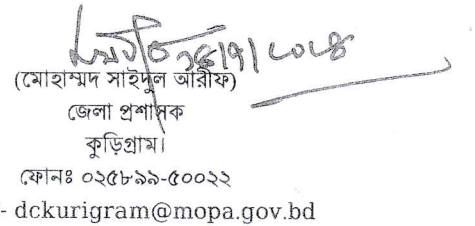 (মোহাম্মদ সাইদুল আরীফ)
জেলা প্রশাসক
কুড়িগ্রাম।
ফোনঃ ০২৫৮৯৯-৫০০২২
- dckurigram@mopa.gov.bd